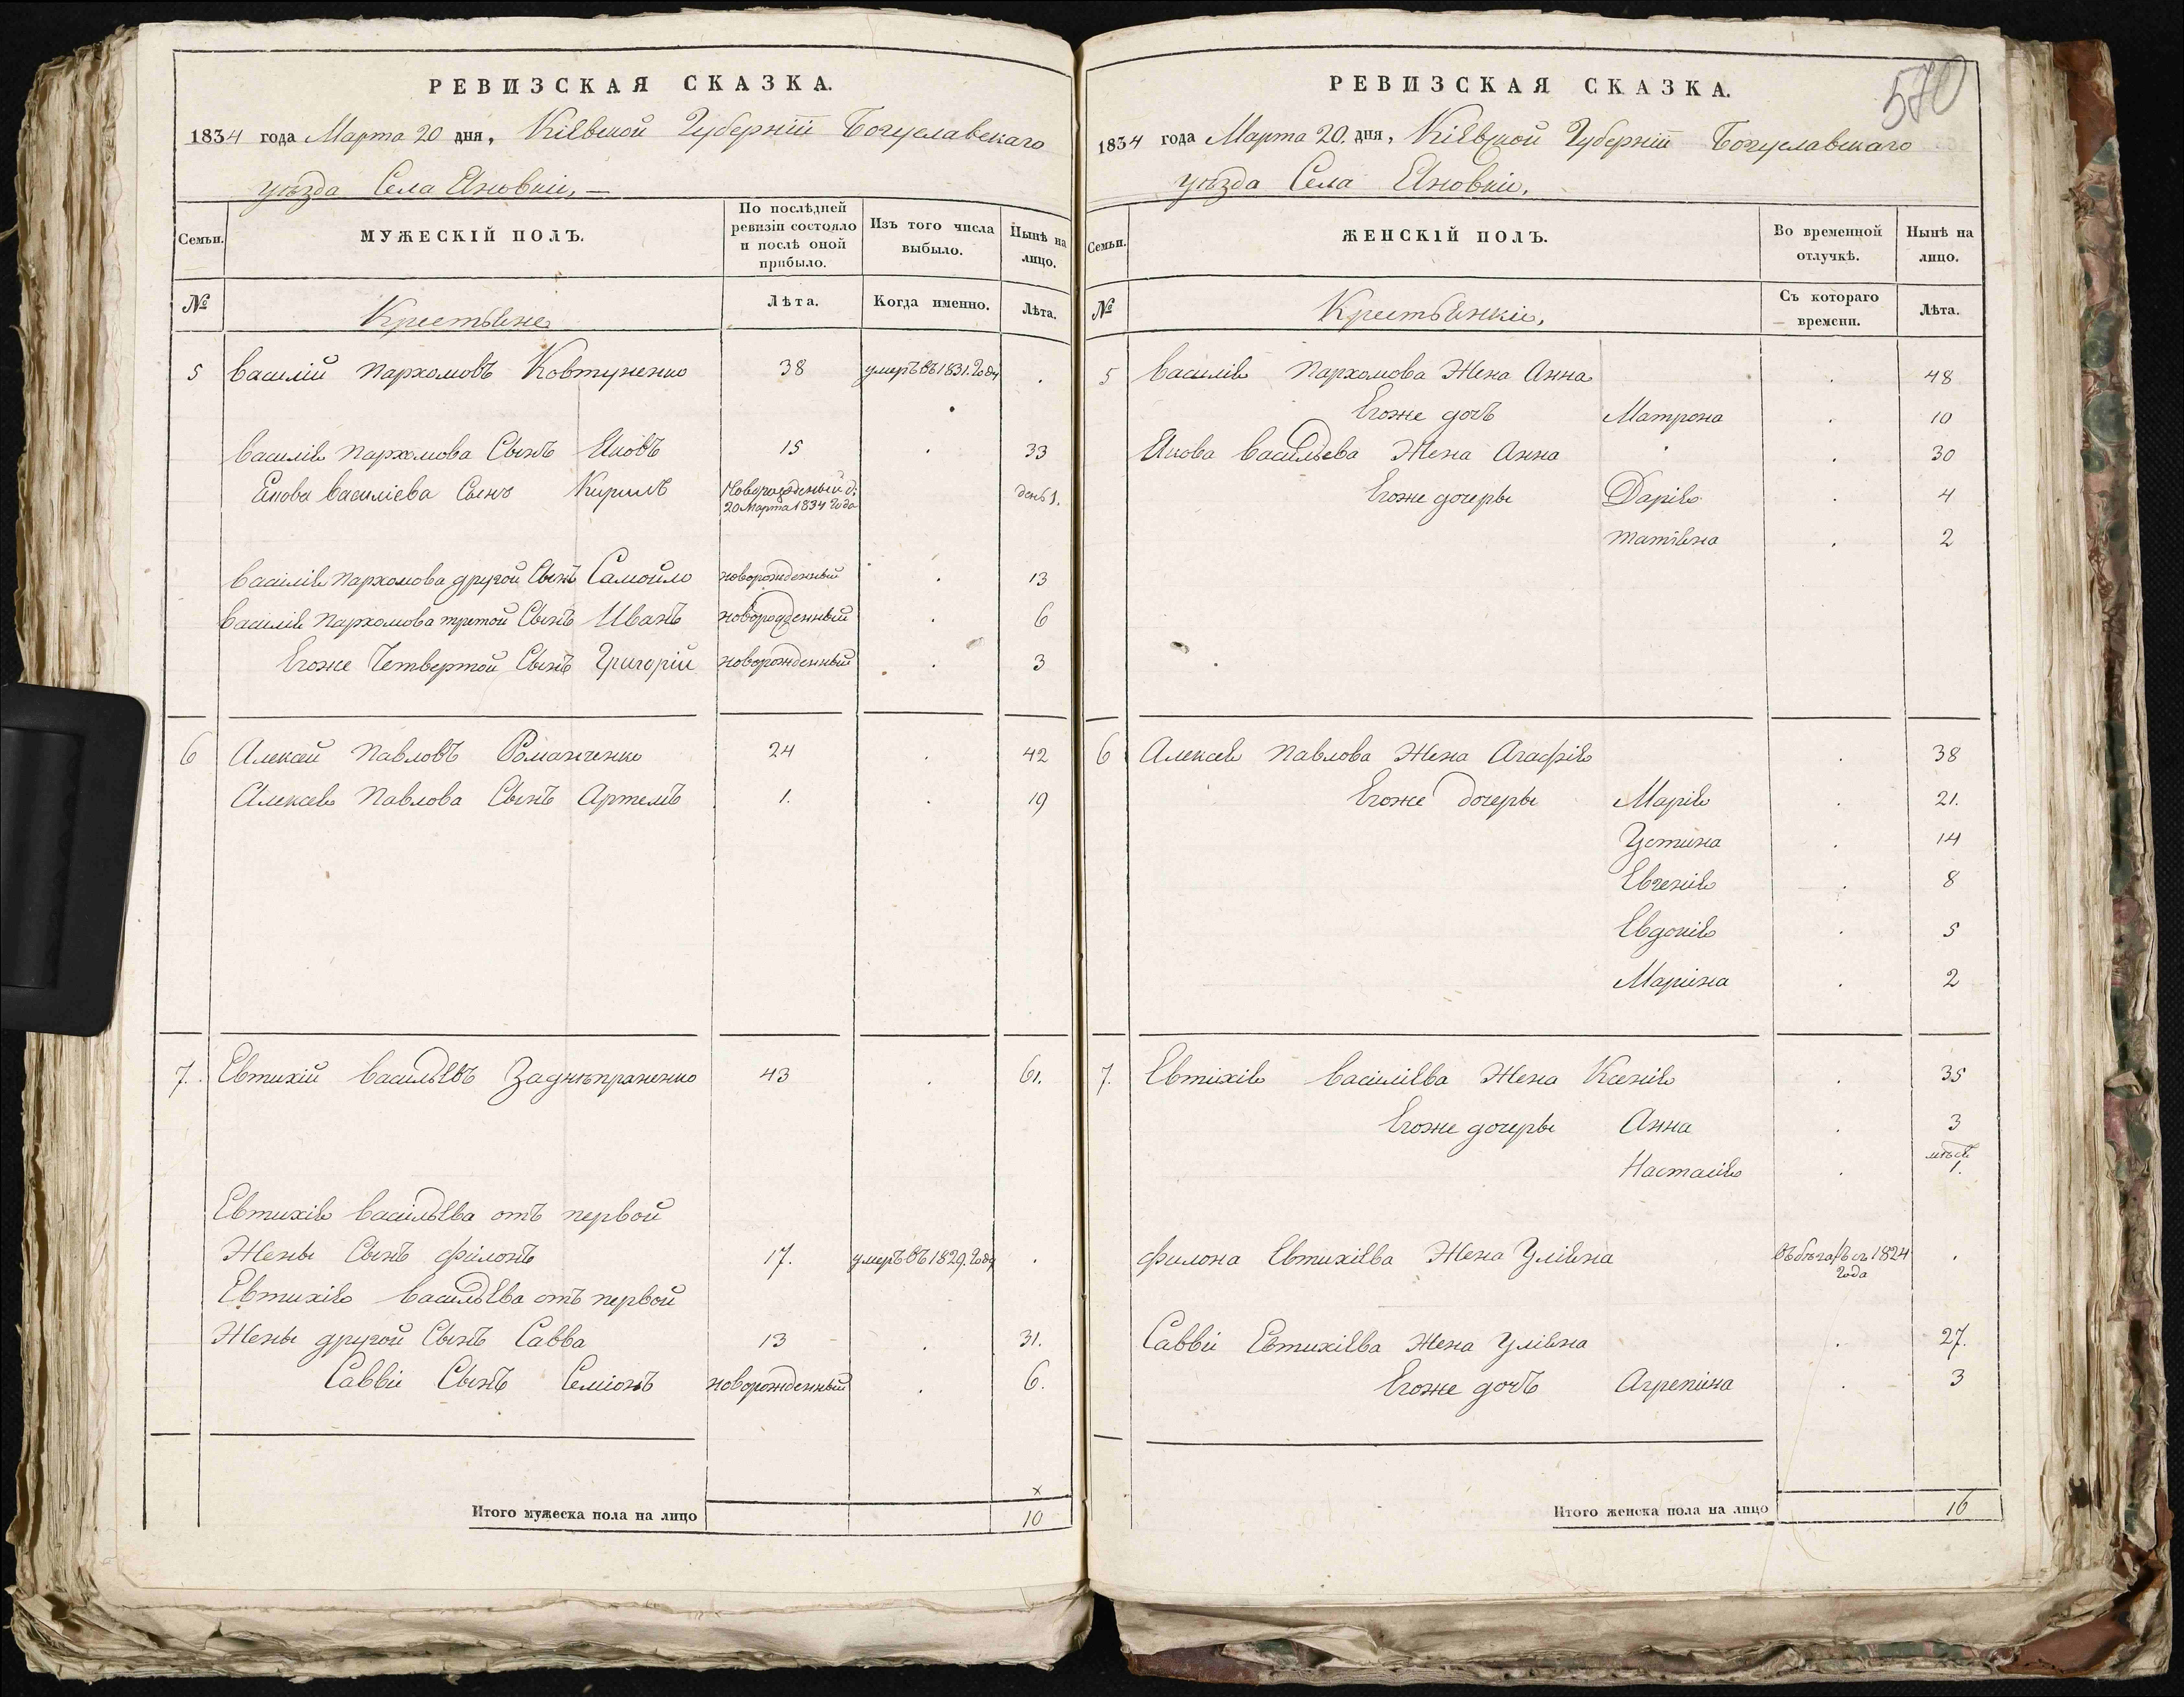 РЕВИЗСКАЯ СКАЗКА.
1834 года Марта 20 дня, Кіевской Губерніи Богуславскаго
уѣзда Села Яновки, —
Семьи. МУЖЕСКІЙ ПОЛЪ. По послѣдней ревизіи состояло и послѣ оной прибыло. Изъ того числа выбыло. Нынѣ на лицо.
№ Крестьяне Лѣта. Когда именно. Лѣта.
5 Василій Пархомовъ Ковтуненко 38 умеръ въ 1831. Году .
Василія Пархомова Сынъ Яковъ 15 . 33
Якова Василіева Сынъ Кирилъ Новорожденый 20 Марта 1834 Года день 1.
Василія Пархомова другой Сынъ Самойло новорожденный . 13
Василія Пархомова третой Сынъ Иванъ новорожденный . 6
Егоже Четвертой Сынъ Григорій новорожденный . 3
6 Алексѣй Павловъ Романченко 24 . 42
Алексея Павлова Сынъ Артемъ 1. . 19
7. Евтихій Васильевъ Заднѣпраненко 43 . 61.
Евтихія Васильева отъ первой
Жены Сынъ Филонъ 17. умеръ въ 1829. Году .
Евтихія Васильева отъ первой
Жены другой Сынъ Савва 13 . 31.
Саввы Сынъ Семіонъ новорожденный . 6.
х
Итого мужеска пола на лицо 10
570
РЕВИЗСКАЯ СКАЗКА.
1834 года Марта 20. дня, Кіевской Губерніи Богуславскаго
уѣзда Села Яновки,
Семьи. ЖЕНСКІЙ ПОЛЪ. Во временной отлучкѣ. Нынѣ на лицо.
№ Крестьянки, Съ котораго времени. Лѣта.
5 Василія Пархомова Жена Анна . 48
Егоже дочъ Матрона . 10
Якова Васильева Жена Анна . 30
Егоже дочеры Дарія . 4
Татіяна . 2
6 Алексея Павлова Жена Агафія . 38
Егоже дочеры Марія . 21.
Устина . 14
Евгенія . 8
Евдокія . 5
Марина . 2
7. Евтихія Василіева Жена Ксенія . 35
Егоже дочеры Анна . 3
Настасія . мѣсяц 1.
Филона Евтихіева Жена Уліяна въ бѣгахъ съ 1824 Года .
Саввы Евтихіева Жена Уліяна . 27.
Егоже дочъ Агрепина . 3
Итого женска пола на лицо 16